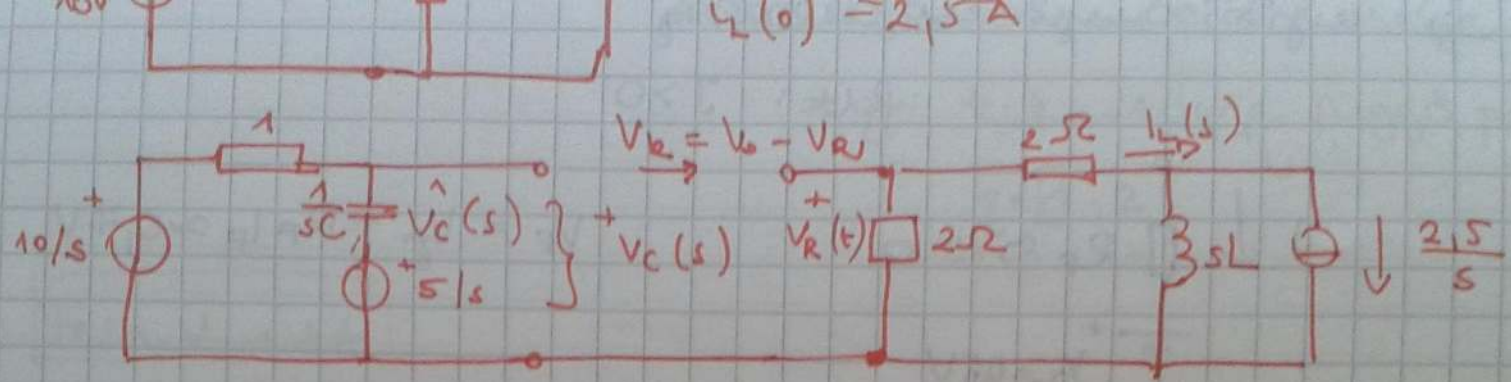 10V
i_L(0) = 2,5 A
1
V_K = V_o - V_R
2Ω
I_L(s)
+
10/s
1/sC
V̂_C(s)
+
5/s
+
V_C(s)
+
V_R(t)
2Ω
sL
2,5/s